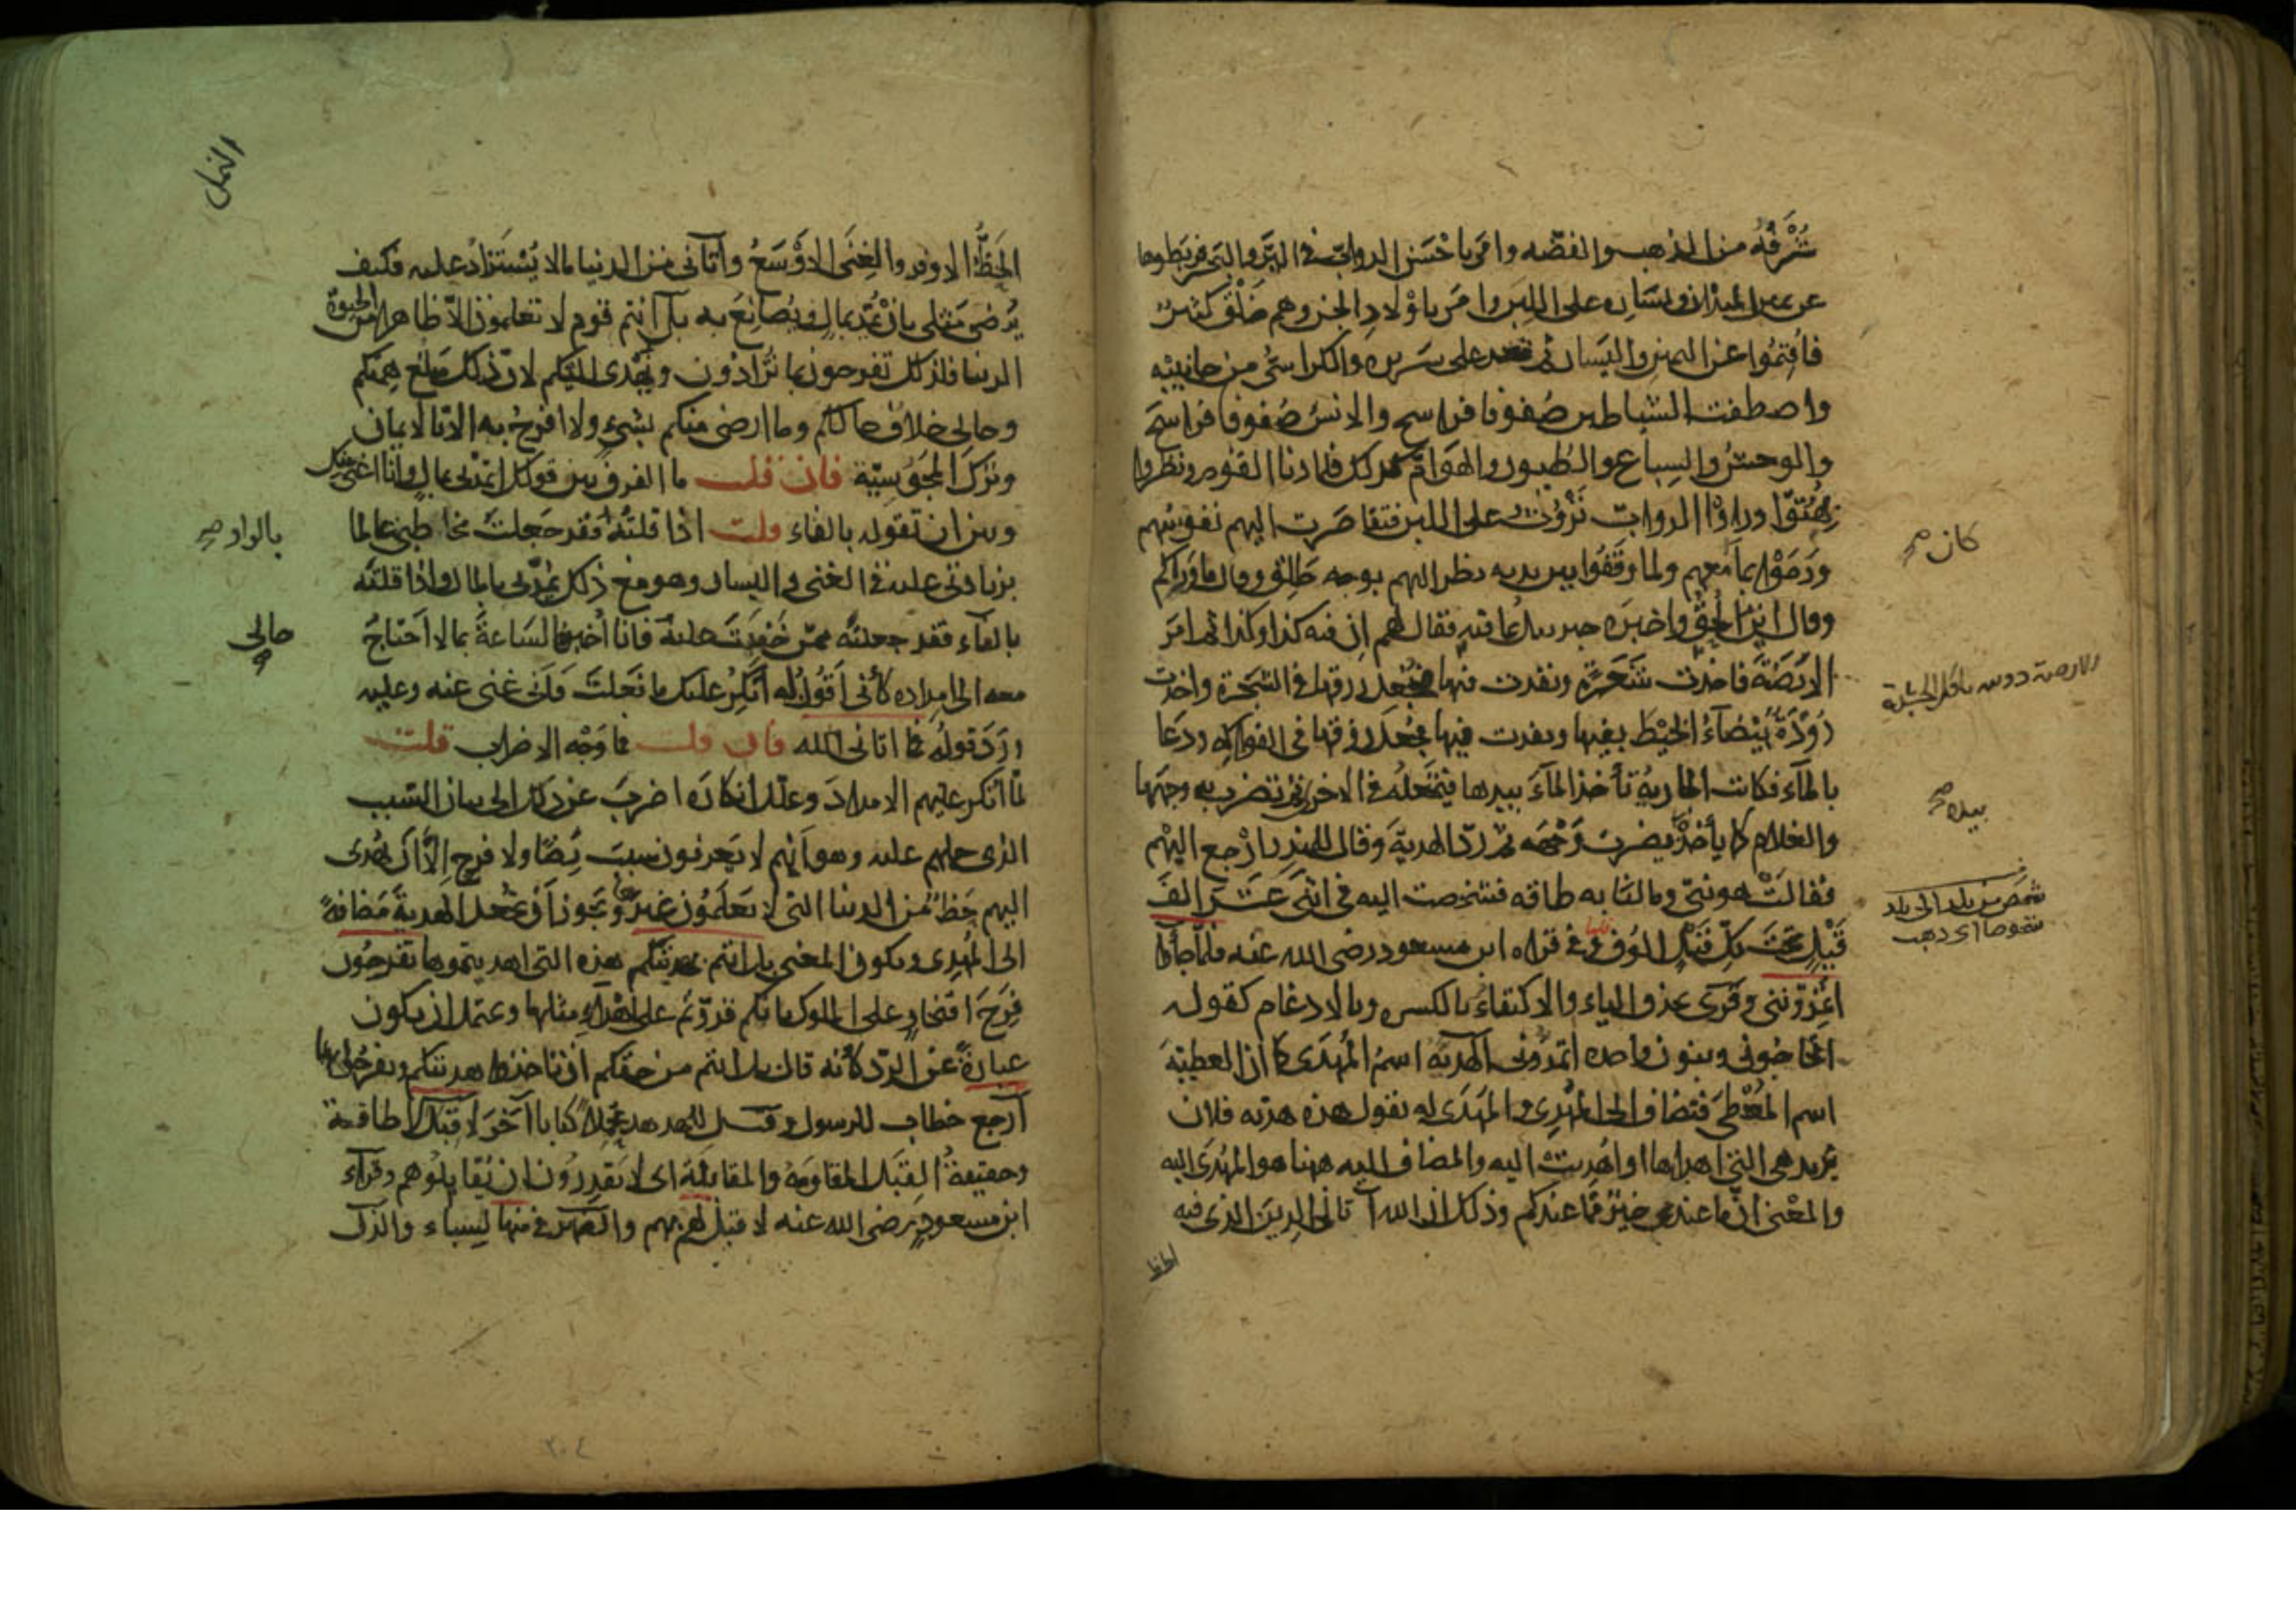 شُرَفُهُ من الذهب والفضه وامر باحْسَنِ الدوابّ فى البَرّ والبَحر فربَطوها
عن يمين الميدان ويسَارِه على اللبِن وامَر باوْلادِ الجن وهم خَلْق كثيرٌ
فاُقيمُوا عن اليمين واليَسار ثم قعد على سَريره والكراسىُّ من جانبيْه
واصطفت الشياطين صُفوفا فراسخ والانسُ صُفوفا فراسخَ
والوحشُ والسِباعُ والطيور والهَوَامّ كذلك فلما دنا القوم ونظروا
بُهِتُوا وراوْا الدوابّ تَرُوثُ على اللبن فتقاصَرت اليهم نفوسُهم
ورَمَوْا بما معهم ولما وقَفُوا بين يديه نظر اليهم بوجه طَلْق وقال ما وراكم
وقال اين الحُقُّ واخبرَه جبريلُ بما فيه فقال لهم ان فيه كذا وكذا ثم امَر
الارَضَةَ فاخذت شَعَرةً ونفذت فيها فجُعل رزقها فى الشجَرة واخذت
دُوْدَةٌ بَيْضاءُ الخَيْطَ بفيها ونفذت فيها فجُعل رزقها فى الفواكه ودَعَا
بالمآء فكانت الجاريةُ تأخذ المآءَ بيدها فتجعَلُه فى الاخرى ثم تضرب به وجهَها
والغلام كما يأخذُه يضرب وَجْهَه ثم ردّ الهديةَ وقال للمنذر ارْجع اليْهم
فقالتْ هو نبىّ وما لنا به طاقه فشخصت اليه فى اثنى عَشَر الفَ
قَيْلٍ تحتَ كلّ قَيْلٍ الوُف وفى قراه ابن مسعود رضى الله عنه فلمّا جاؤا
اَتُمِدّوننى وقرى بحذف الياء والاكتفاءُ بالكسره وبالادغام كقوله
اتحاجّونى وبنون واحده اتمدونى الهديّه اسمُ المُهدَى كما ان العطيّةَ
اسم المُعْطَى فتضاف الى المُهْدِى والمُهدَى له تقول هذه هديّه فلان
تريد هى التى اهداها او اُهْديتْ اليه والمضاف اليه ههنا هو المُهدَى اليه
والمعْنى ان ما عندى خيرٌ ممّا عندكم وذلك ان الله آتانى الدين الذى فيه
الحظ
كان صح
بيده صح
شخص من بلد الى بلد
شخوصا اى ذهب
النمل
الحَظُّ الاوفر والغِنَى الاوْسَعُ وآتانى من الدنيا ما لا يُسْتَزادُ عليه فكيف
يَرضى مثلى بان يُمَدّ بمالٍ ويُصانَعَ به بل انتم قوم لا تعلمون الاّ ظاهرا من الحيوة
الدنيا فلذلك تفرحون بما تُزادُون ويُهْدى اليكم لان ذلك مَبْلَغ هِمّتكم
وحالى خلافُ حالكم وما ارضى منكم بشىءٍ ولا افرحُ به الاّ بالايمان
وتَرْكِ المجَوسيّة فان قلت ما الفرق بين قولك اتمدنى بمالٍ وانا اغنى منك
وبين ان تقوله بالفاء قلت اذا قلتُه فقد جَعلتُ مخاطبى عالما
بزيادتى عليه فى الغنى واليسار وهو مع ذلك يُمِدّنى بالمال واذا قلتُه
بالفاء فقد جعلتُه ممّن خَفِيَتْ عليه فانا اُخبره الساعةَ بما لا اَحتاجُ
معه الى امداده كأنّى اقولُ له اُنكِرُ عليك ما فَعلتَ فانّى غنى عنه وعليه
ورَدَ قولُه فما اتانى الله فان قلت فما وَجْه الاضراب قلت
لمّا انكر عليهم الامدادَ وعلّل انكارَه اضربَ عن ذلك الى بيان السَبب
الذى حملهم عليه وهو اَنهم لا يَعرفون سببَ رِضًا ولا فرحٍ اِلاّ اَن يُهدى
اليهم حَظّ من الدنيا التى لا يعلمون غيرها ويجوز اَنْ تُجعل الهديةَ مضافةً
الى المُهْدِى ويكون المعنى بل انتم بهديتكم هذه التى اهديتموها تفرحُون
فَرَحَ افتخارٍ على الملوك بانكم قدرْتم على اهدآء مثلها ويحتمل ان يكون
عبارةً عن الردّ كأنه قال بل انتم من حقكم ان تاخذوا هديتكم وتفرحُوا بها
اَرجع خطاب للرسول وقيل للهدهد مُحَمّلاً كتابا آخَر لا قِبَل لا طاقة
وحقيقةُ القِبَل المقاومَةُ والمقابَلَة اى لا يَقدِرُون ان يُقابِلُوهم وقرآء
ابن مسعودٍ رضى الله عنه لا قبل لهم بهم والضمير فى منها لِسباء والذلُ
بالواو صح
حالى
٢٠٤